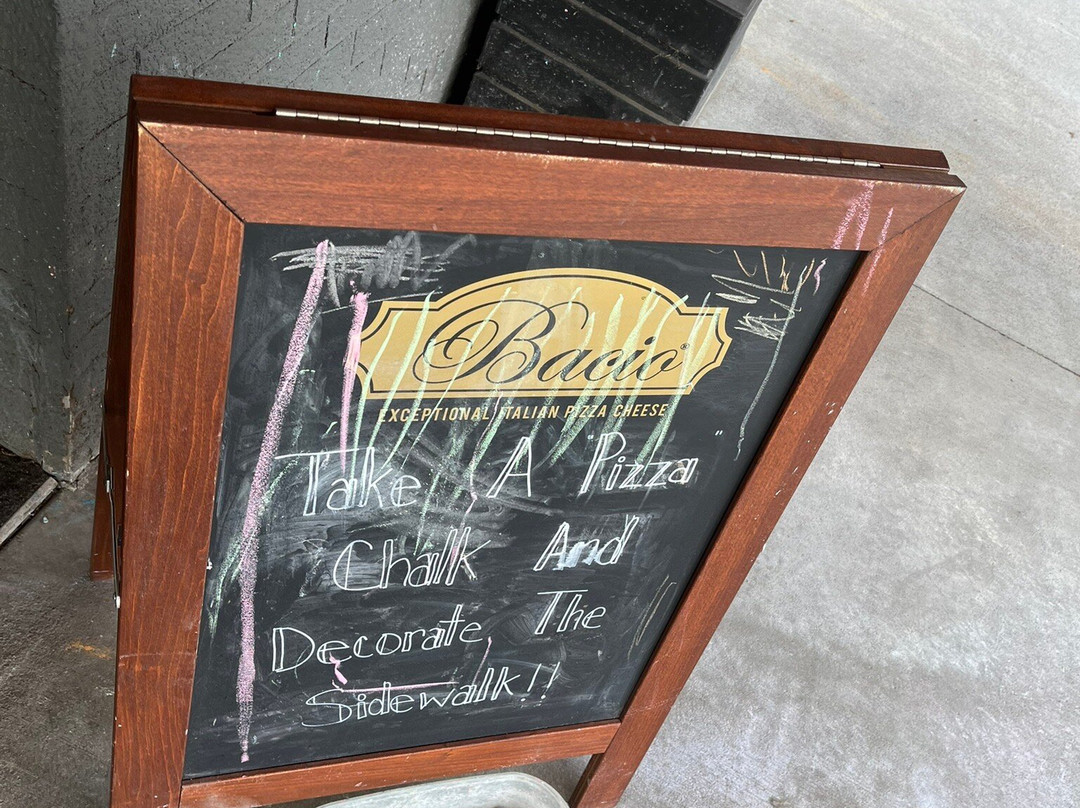 Bacio®
EXCEPTIONAL ITALIAN PIZZA CHEESE
Take A "Pizza"
Chalk And
Decorate The
Sidewalk!!